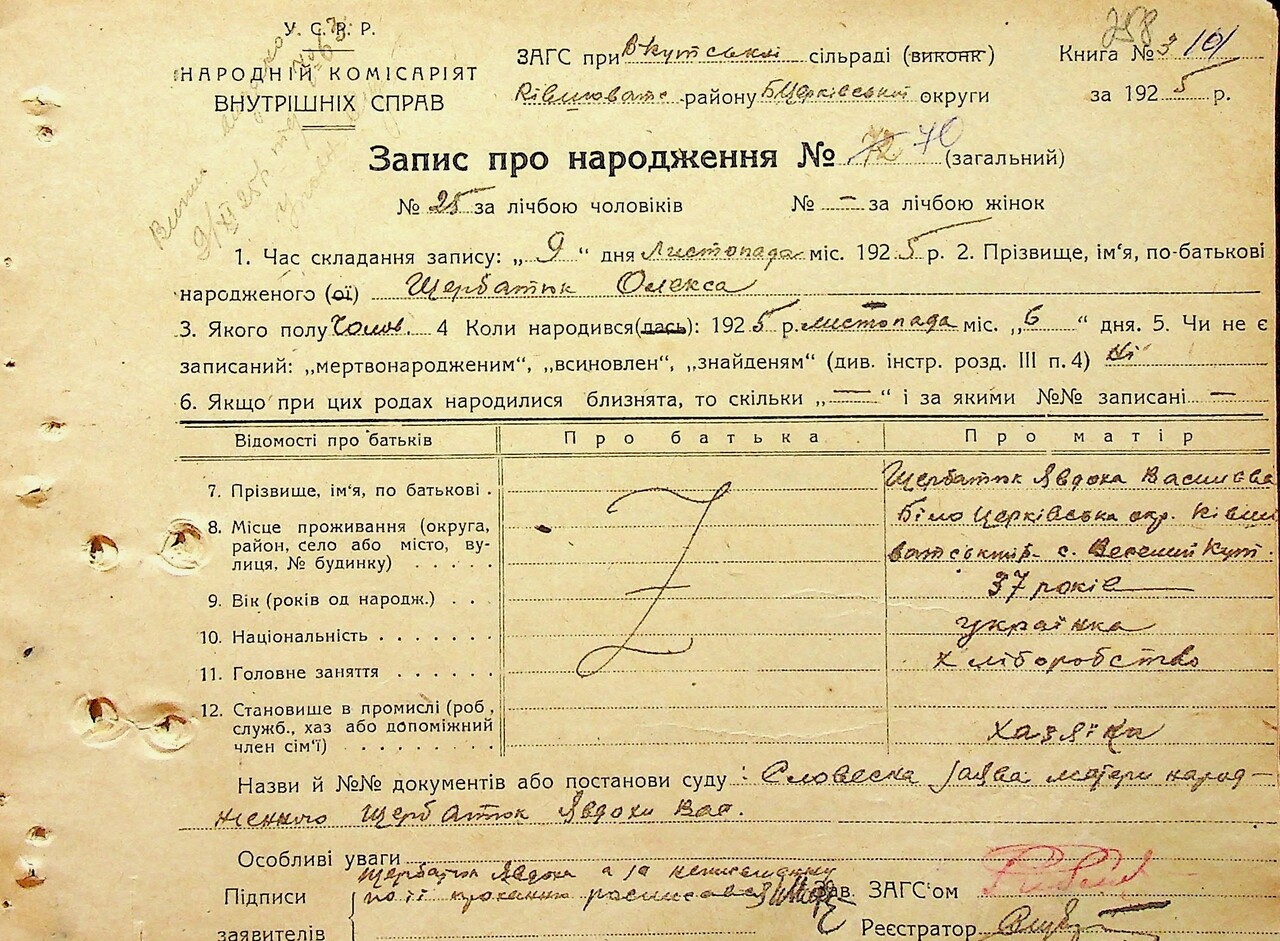 У. С. Р. Р.
НАРОДНІЙ КОМІСАРІЯТ
ВНУТРІШНІХ СПРАВ
ЗАГС при Вкутській сільраді (виконк)
району БЦерківської округи
258
Книга № 3 101
за 1925 р.
Запис про народження № 72 70 (загальний)
№ 25 за лічбою чоловіків № — за лічбою жінок
1. Час складання запису: „ 9 “ дня Листопада міс. 1925 р. 2. Прізвище, ім‘я, по-батькові
народженого (ої) Щербатюк Олекса
3. Якого полу Чолов. 4 Коли народився(лась): 1925 р. листопада міс. „ 6 “ дня. 5. Чи не є
записаний: „мертвонародженим“, „всиновлен“, „знайденям“ (див. інстр. розд. III п. 4) Ні
6. Якщо при цих родах народилися близнята, то скільки „ — “ і за якими №№ записані —
Відомості про батьків Про батька Про матір
7. Прізвище, ім‘я, по батькові . Щербатюк Явдоха Василєва
8. Місце проживання (округа, Біло Церківська окр.
район, село або місто, ву- с. Веселий Кут.
лиця, № будинку) . . . . .
9. Вік (років од народж.) . . . 37 років
10. Національність . . . . . . . українка
11. Головне заняття . . . . . . хліборобство
12. Становище в промислі (роб ,
служб., хаз або допоміжний хазяйка
член сім‘ї) . . . . . . . . .
Назви й №№ документів або постанови суду : Словесна заява матери народ-
женного Щербатюк Явдохи Вас.
Особливі уваги
Щербатюк Явдоха а за неписьменну
Підписи по її проханню росписався Зав. ЗАГС‘ом
заявителів Реєстратор